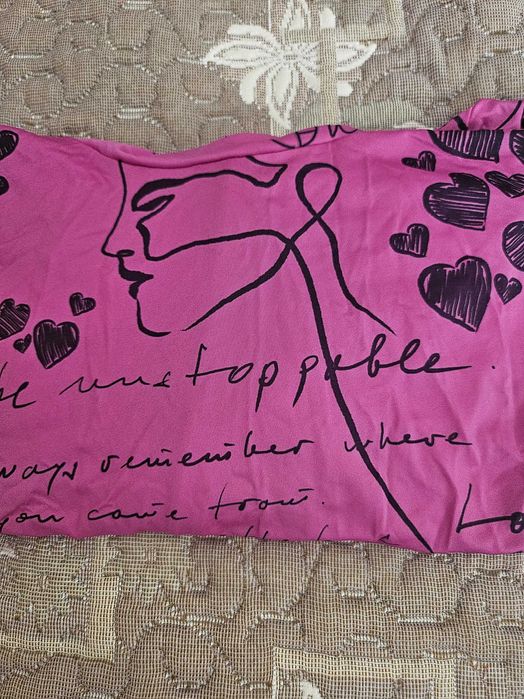 be unstoppable.
ways remember where
you come from.